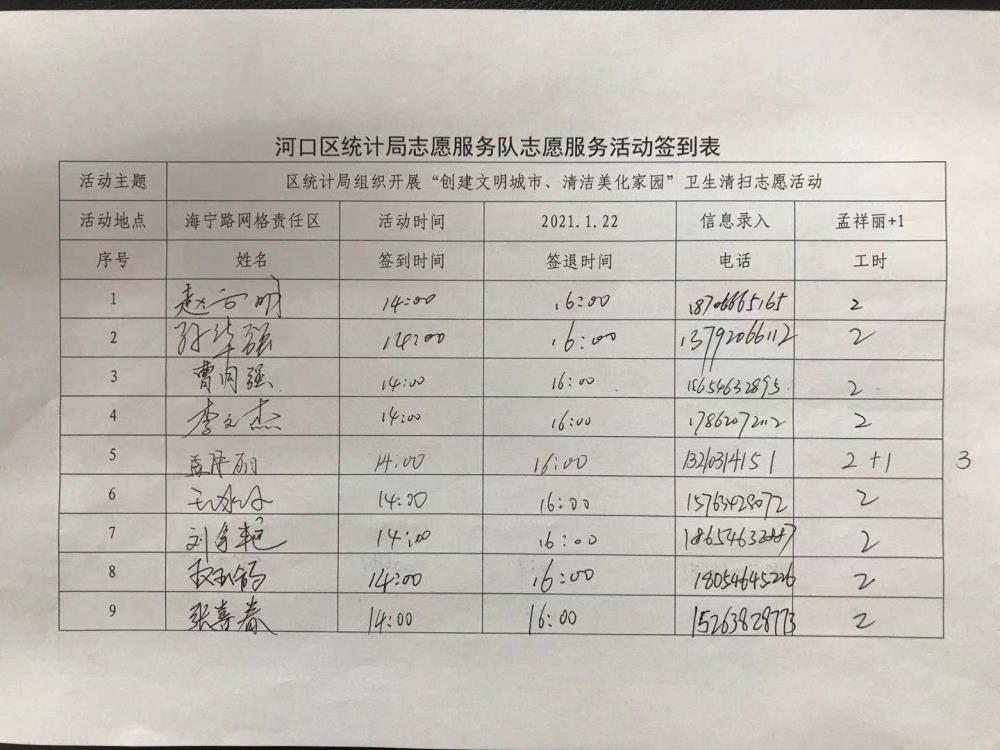 河口区统计局志愿服务队志愿服务活动签到表
活动主题 区统计局组织开展“创建文明城市、清洁美化家园”卫生清扫志愿活动
活动地点 海宁路网格责任区 活动时间 2021.1.22 信息录入 孟祥丽+1
序号 姓名 签到时间 签退时间 电话 工时
1 14:00 16:00 2
2 孙华强 14:00 16:00 13792066112 2
3 曹内强 14:00 16:00 18654632895 2
4 李文杰 14:00 16:00 2
5 孟祥丽 14:00 16:00 13210314151 2+1 3
6 14:00 16:00 15763428072 2
7 14:00 16:00 2
8 14:00 16:00 18054645226 2
9 张喜春 14:00 16:00 15263828773 2